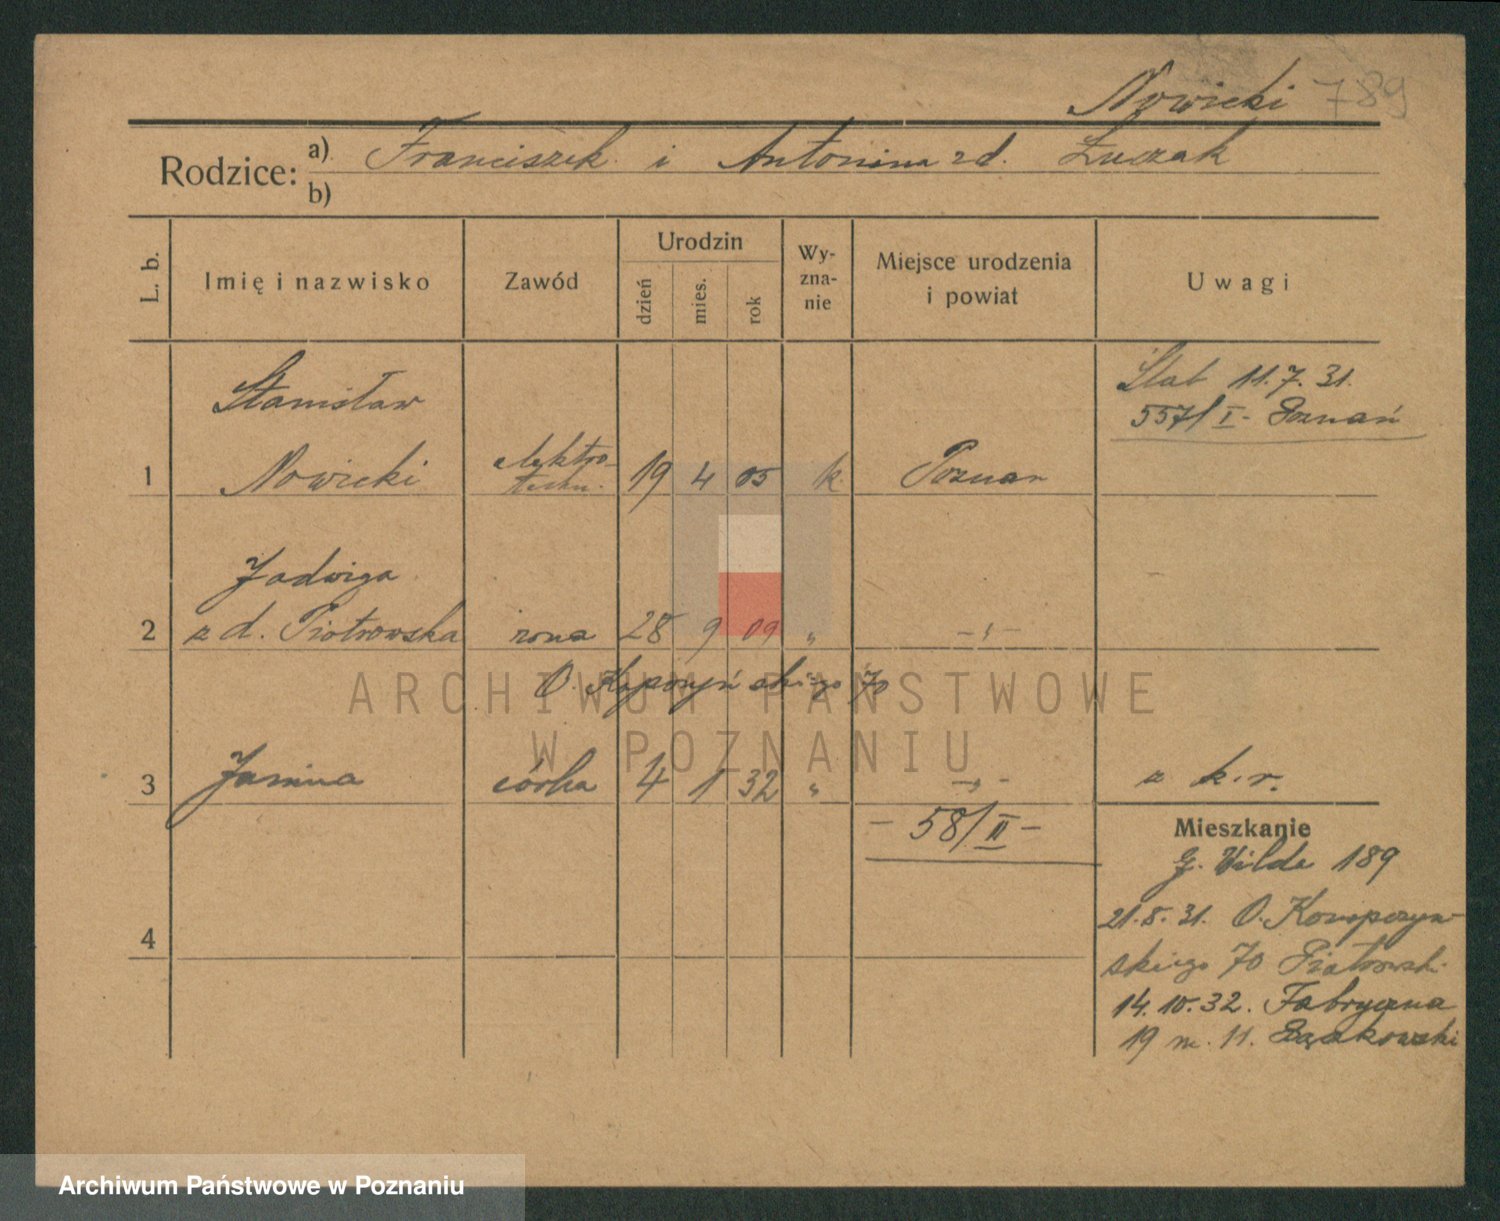 Nowicki 789
Rodzice: a) Franciszek i Antonina zd. Łuczak
b)
L. b.
Imię i nazwisko
Zawód
Urodzin
dzień
mies.
rok
Wy-
zna-
nie
Miejsce urodzenia
i powiat
Uwagi
Stanisław
Ślub 11.7.31.
557/I- Poznań
1 Nowicki elektro-
techn. 19 4 05 k. Poznań
Jadwiga
2 z d. Piotrowska żona 28 9 09 „ -„-
O. Kopczyńskiego 70
3 Janina córka 4 1 32 „ -„- z k.r.
- 58/II -
Mieszkanie
G. Wilda 189
21.8.31. O. Konopczyń-
skiego 70 Piotrowsk.
4
14.10.32. Fabryczna
19 m. 11. Bąskowski
ARCHIWUM PAŃSTWOWE
W POZNANIU
Archiwum Państwowe w Poznaniu